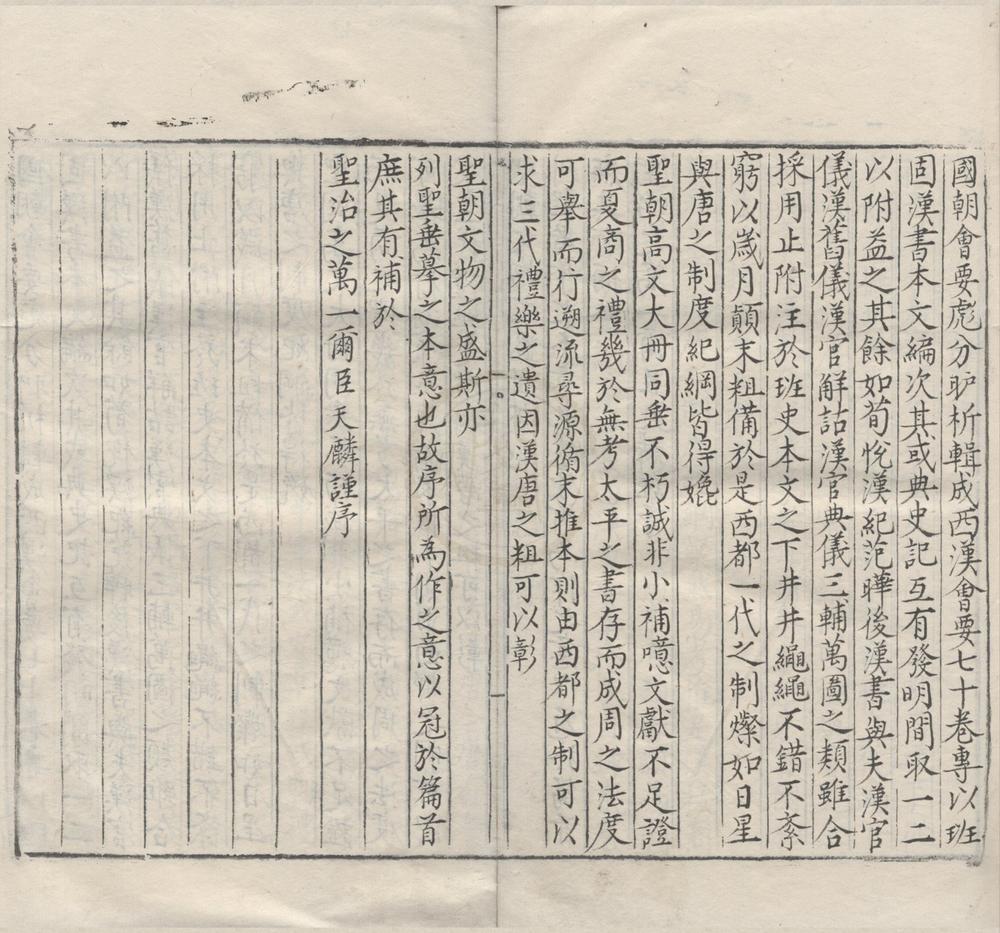 國朝會要彪分昈析輯成西漢會要七十卷專以班
固漢書本文編次其或典史記互有發明間取一二
以附益之其餘如荀悅漢紀范曄後漢書與夫漢官
儀漢舊儀漢官解詁漢官典儀三輔萬圖之類雖合
採用止附注於班史本文之下井井繩繩不錯不紊
窮以歲月顛末粗備於是西都一代之制燦如日星
與唐之制度紀綱皆得媲
聖朝高文大冊同垂不朽誠非小補噫文獻不足證
而夏商之禮幾於無考太平之書存而成周之法度
可舉而行遡流尋源循末推本則由西都之制可以
求三代禮樂之遺因漢唐之粗可以彰
聖朝文物之盛斯亦
列聖垂摹之本意也故序所為作之意以冠於篇首
庶其有補於
聖治之萬一爾臣天麟謹序